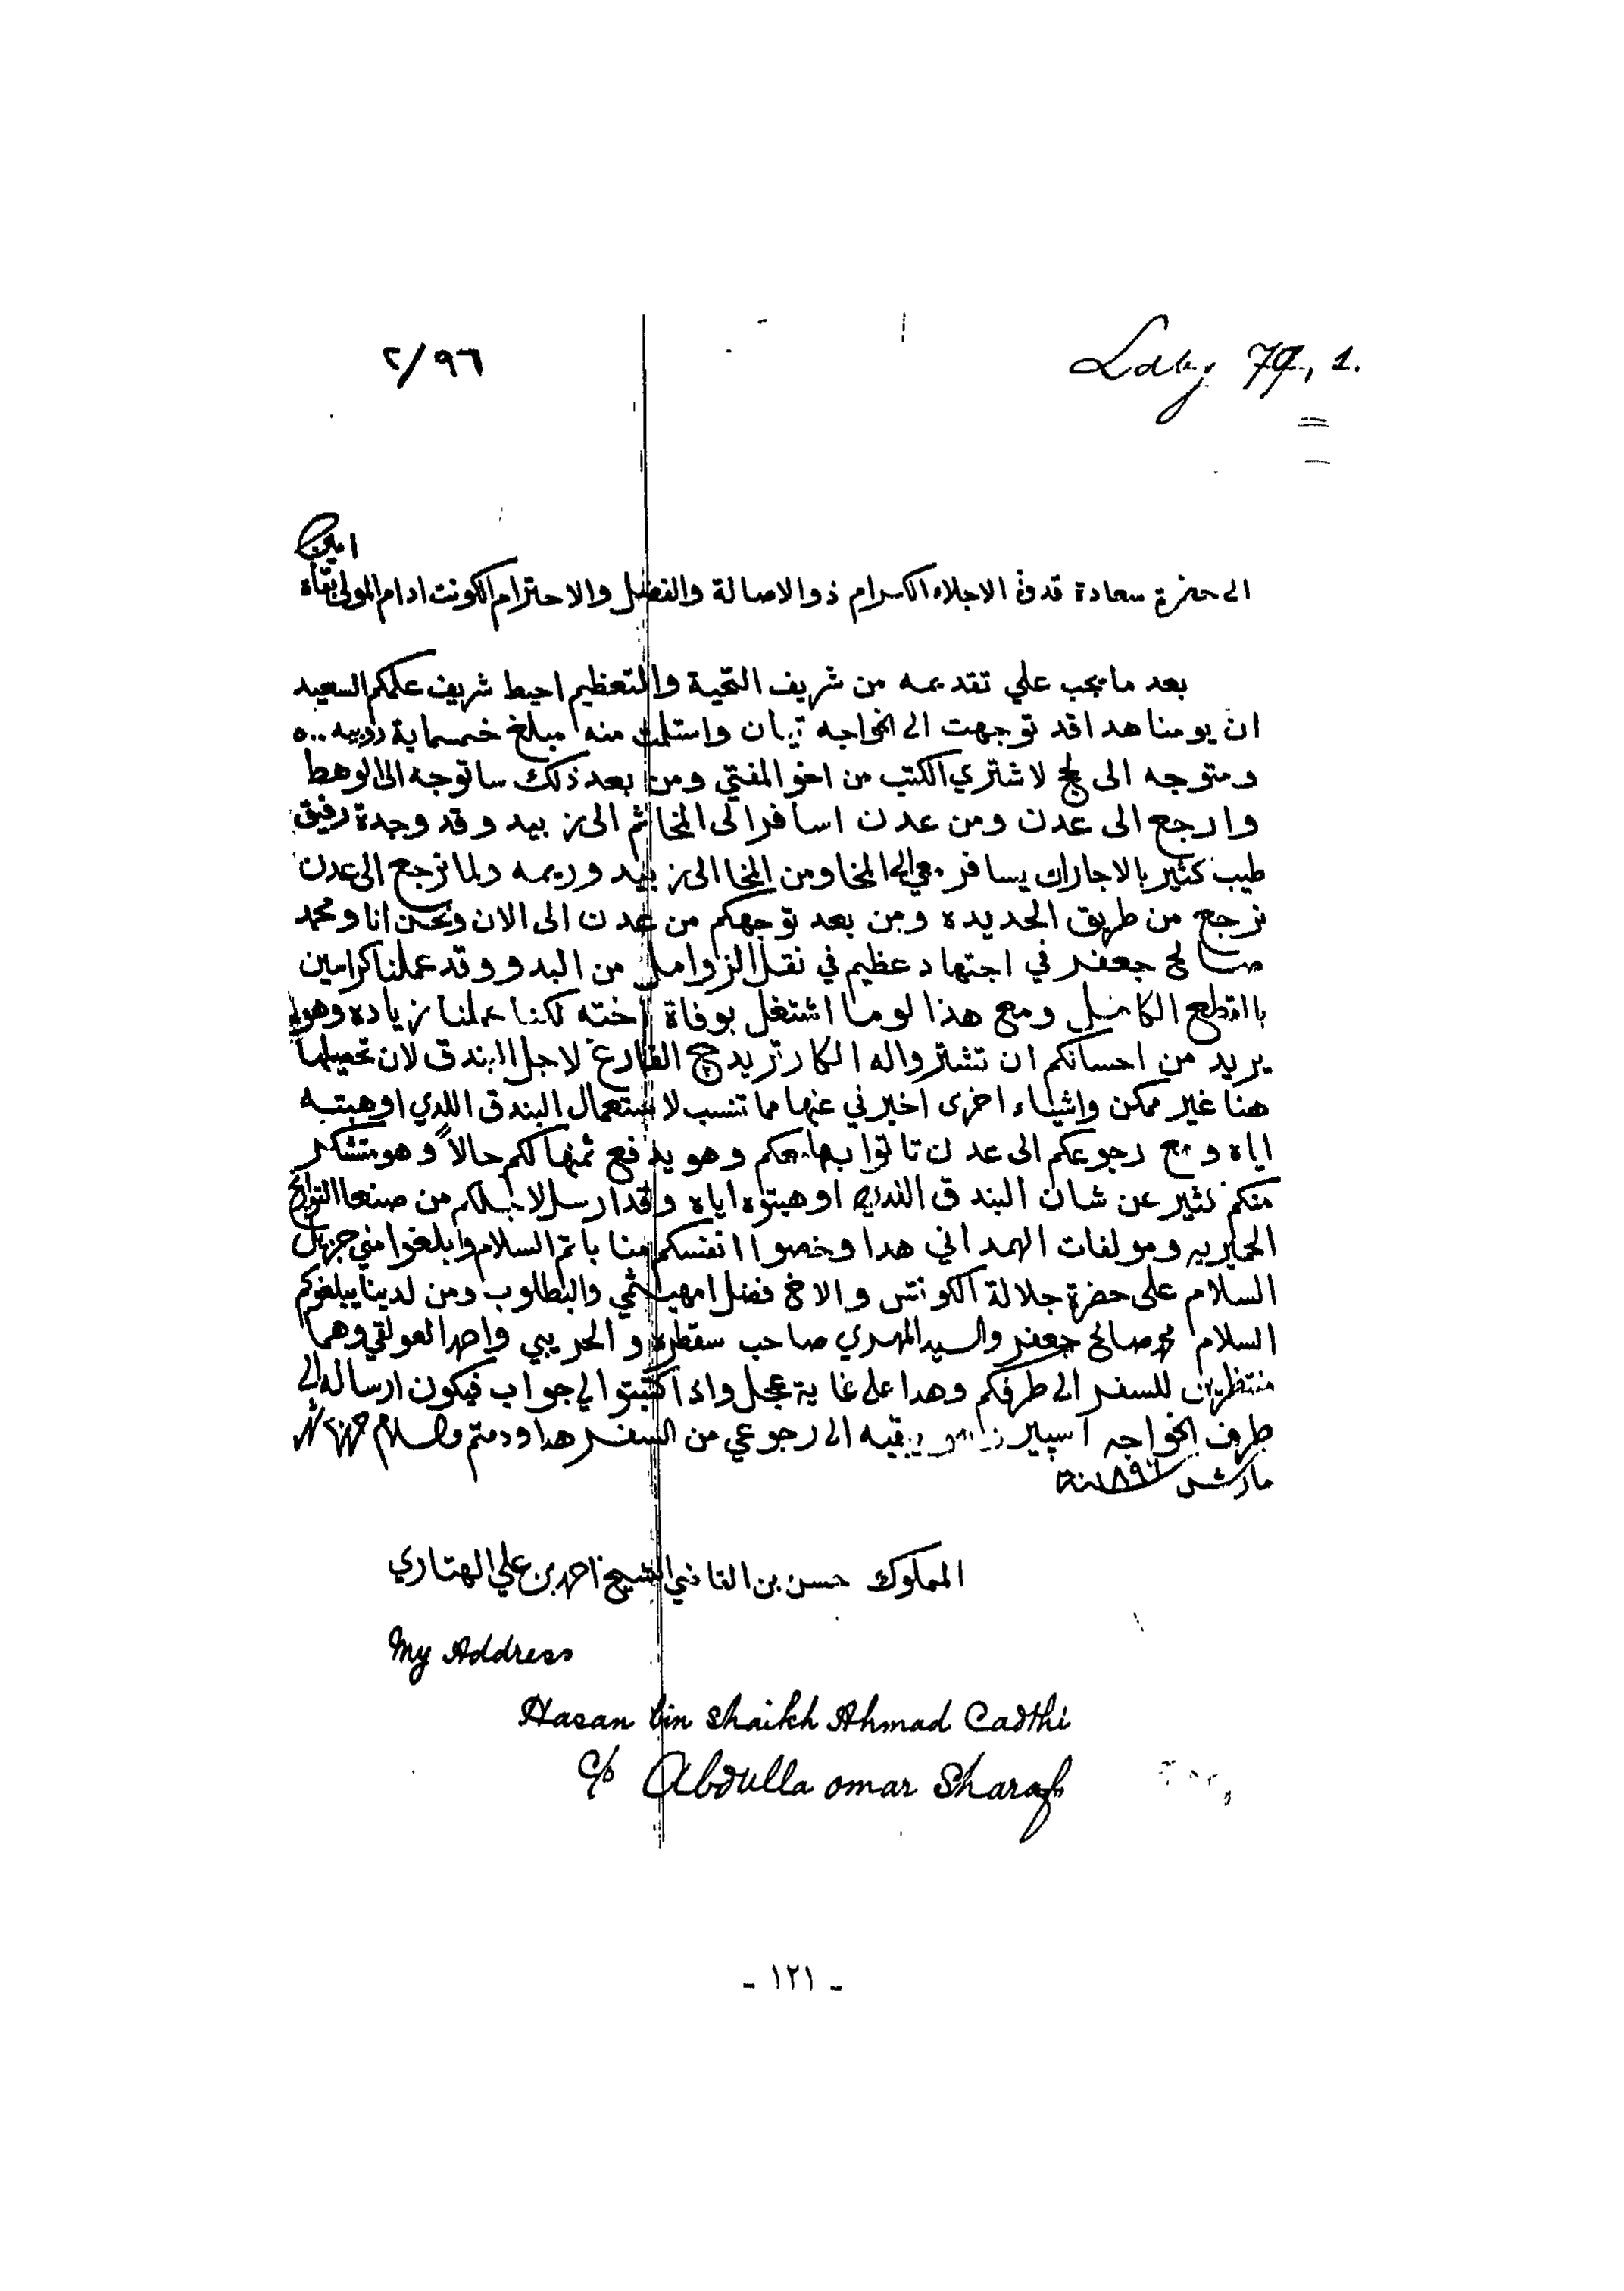 ٢/٩٦
79, 1.
امين
الى حضرة سعادة قدوة الاجلاء الكرام ذو الاصالة والفضل والاحترام الكونت ادام المولى بقاه
بعد ما يجب علي تقديمه من شريف التحية والتعظيم احيط شريف علمكم السعيد
ان يومنا هدا قد توجهت الى الخواجه تيان واستلمت منه مبلغ خمسماية روبيه ٥٠٠
ومتوجه الى لحج لاشتري الكتب من اخو المفتي ومن بعد ذلك ساتوجه الى الوهط
وارجع الى عدن ومن عدن اسافر الى المخا ثم الى زبيد وقد وجدة رفيق
طيب كثير بالاجارك يسافر معي الى المخا ومن المخا الى زبيد وريمه ولما نرجع الى عدن
نرجع من طريق الحديده ومن بعد توجهكم من عدن الى الان ونحن انا ومحمد
صالح جعفر في اجتهاد عظيم في نقل الزوامل من البدو وقد عملنا كراسين
بالقطع الكامل ومع هذا لوما اشتغل بوفاة اخته لكنا عملنا زياده وهو
يريد من احسانكم ان تشترواله الكارتريدج الفارغ لاجل البندق لان تحصيلها
هنا غير ممكن واشياء اخرى اخبرني عنها مما تنسب لاستعمال البندق اللدي اوهبته
اياه ومع رجوعكم الى عدن تاتوا بها معكم وهو يدفع ثمنها لكم حالاً وهو متشكر
منكم كثير عن شان البندق اللدي اوهبتوه اياه وقد ارسل لاجلكم من صنعا التواريخ
الحميريه ومولفات الهمداني هدا وخصوا انفسكم منا باتم السلام وابلغوا مني جزيل
السلام على حضرة جلالة الكونتس والاخ فضل امهيثمي والبطلوب ومن لدينا يبلغوكم
السلام محمد صالح جعفر والسيد المهري صاحب سقطره والحريبي واحمد العولقي وهما
منتظرين للسفر الى طرفكم وهدا على غاية عجل وادا كتبتوا لي جواب فيكون ارساله الى
طرف الخواجه يبقيه الى رجوعي من السفر هدا ودمتم والسلام
مارش سنة ١٨٩٦
المملوك حسن بن القاضي الشيخ احمد بن علي الهتاري
My Address
Hasan bin Shaikh Ahmad Cadthi
c/o Abdulla omar Sharaf
- ١٢١ -